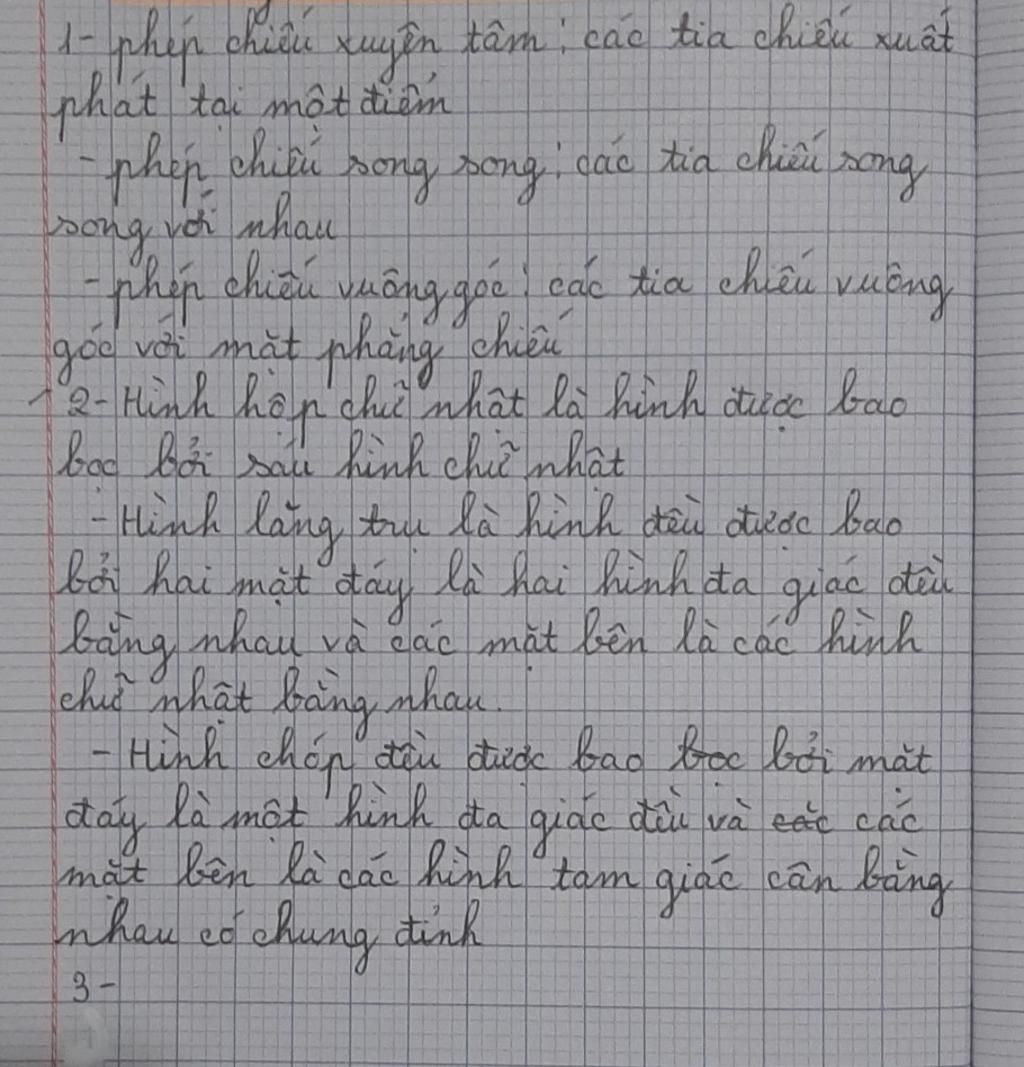 1- phép chiếu xuyên tâm: các tia chiếu xuất
phát tại một điểm
- phép chiếu song song: các tia chiếu song
song với nhau
- phép chiếu vuông góc: các tia chiếu vuông
góc với mặt phẳng chiếu
2- Hình hộp chữ nhật là hình được bao
bọc bởi sáu hình chữ nhật
- Hình lăng trụ là hình đều được bao
bởi hai mặt đáy là hai hình đa giác đều
bằng nhau và các mặt bên là các hình
chữ nhật bằng nhau.
- Hình chóp đều được bao bọc bởi mặt
đáy là một hình đa giác đều và các các
mặt bên là các hình tam giác cân bằng
nhau có chung đỉnh
3-